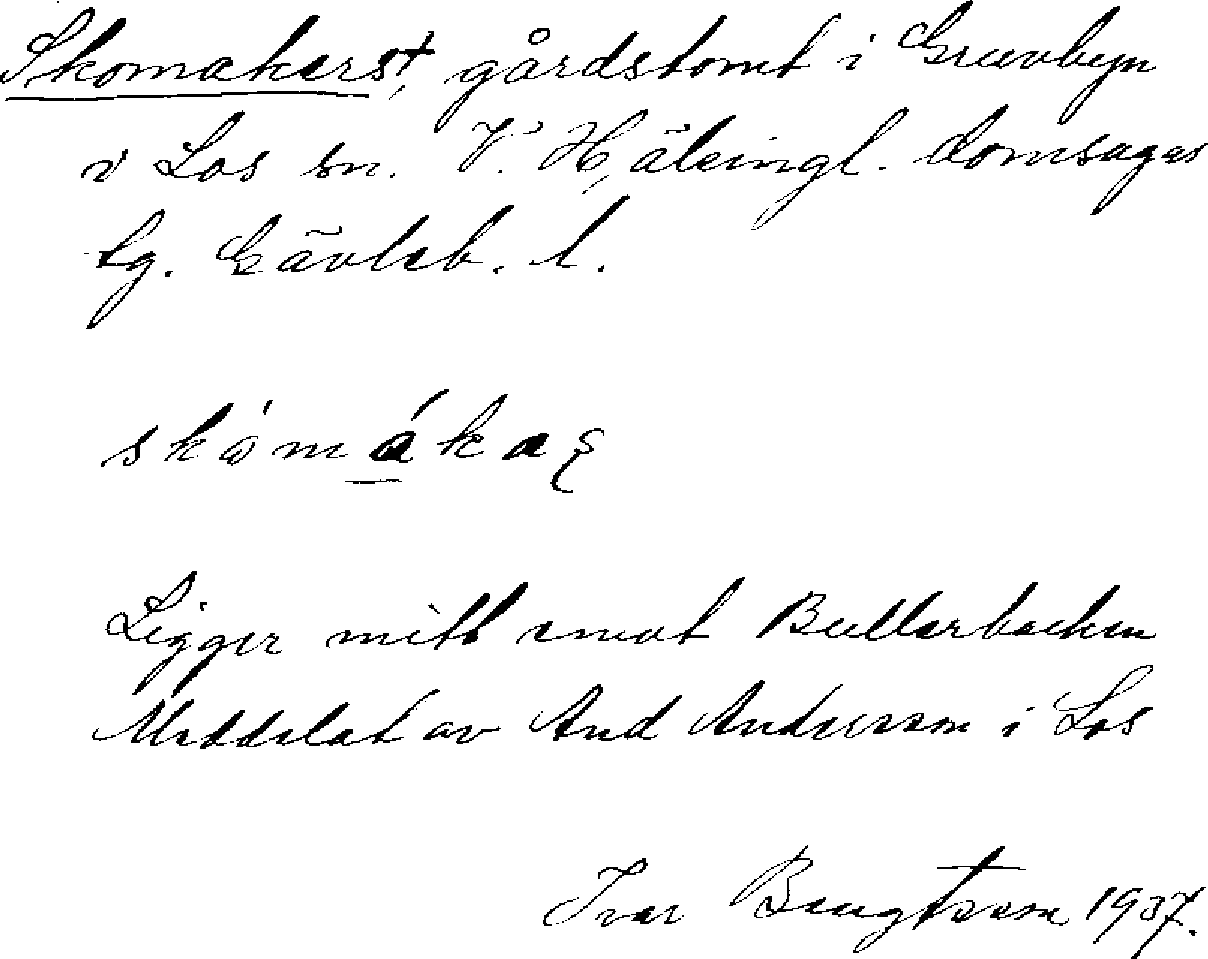 Skomakerst, gårdstomt i Gruvbyn
i Los sn. V. Hälsingl. domsagas
tg. Gävleb. l.
Ligger mitt emot Bullerbacken
Meddelat av And Andersson i Los
Ivar Bengtsson 1937.